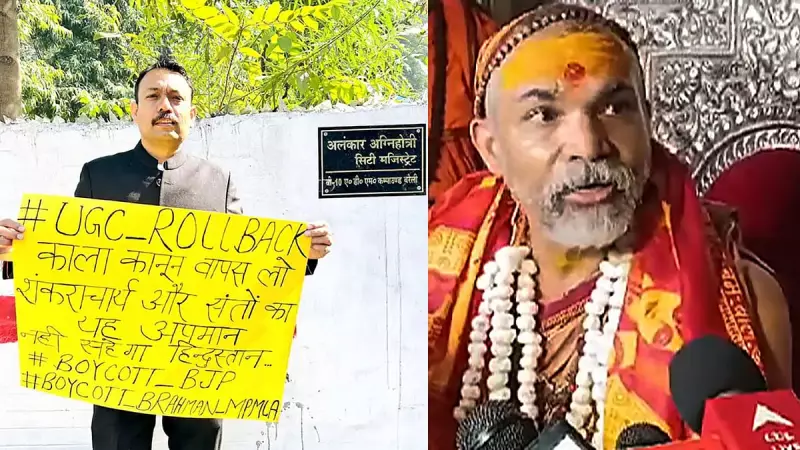 #UGC_ROLLBACK
काला कानून वापस लो
शंकराचार्य और संतों का
यह अपमान
नहीं सहेगा हिन्दुस्तान...
#BOYCOTT_BJP
#BOYCOTT_BRAHMAN_MPMLA
अलंकार अग्निहोत्री
सिटी मजिस्ट्रेट
बी-10 ए०डी०एम० कम्पाउण्ड बरेली